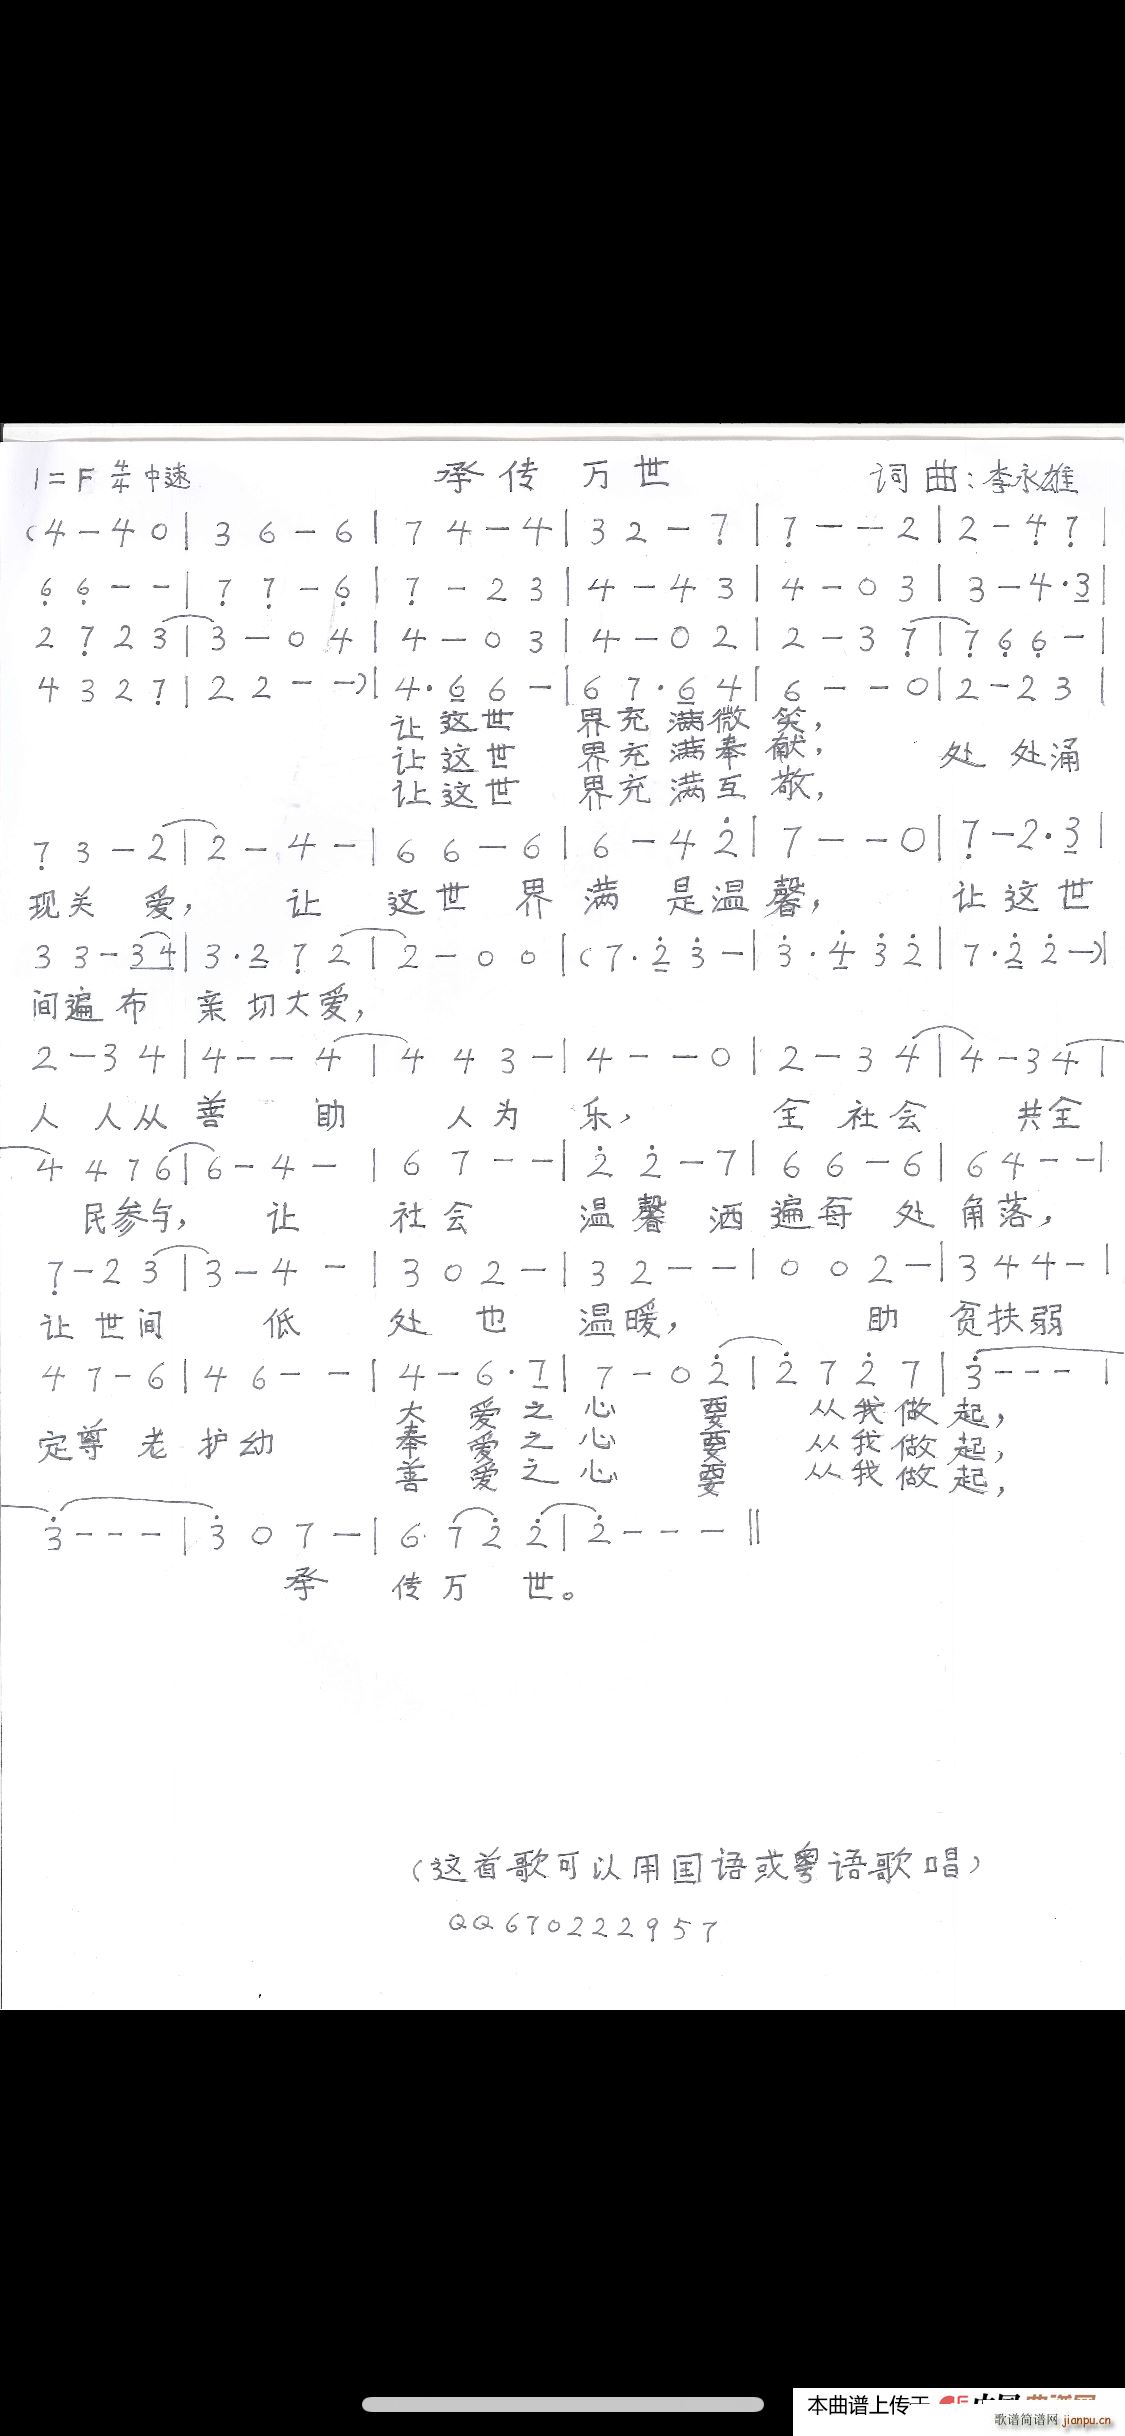 1=F 4/4 中速 承传万世 词曲:李永雄
(4 - 4 0 | 3 6 - 6 | 7 4 - 4 | 3 2 - 7̣ | 7̣ - - 2 | 2 - 4̣ 7̣ |
6̣ 6̣ - - | 7̣ 7̣ - 6̣ | 7̣ - 2 3 | 4 - 4 3 | 4 - 0 3 | 3 - 4 · 3 |
2 7̣ 2 3 | 3 - 0 4 | 4 - 0 3 | 4 - 0 2 | 2 - 3 7̣ | 7̣ 6̣ 6̣ - |
4 3 2 7̣ | 2 2 - -) | 4 · 6 6 - | 6 7 · 6 4 | 6 - - 0 | 2 - 2 3 |
让这世 界充满微笑,
让这世 界充满奉献, 处处涌
让这世 界充满互敬,
7̣ 3 - 2 | 2 - 4 - | 6 6 - 6 | 6 - 4 2̇ | 7 - - 0 | 7̣ - 2 · 3 |
现关爱, 让 这世界满是温馨, 让这世
3 3 - 3 4 | 3 · 2 7̣ 2 | 2 - 0 0 | (7 · 2̇ 3̇ - | 3̇ · 4̇ 3̇ 2̇ | 7 · 2̇ 2̇ -) |
间遍布亲切大爱,
2 - 3 4 | 4 - - 4 | 4 4 3 - | 4 - - 0 | 2 - 3 4 | 4 - 3 4 |
人人从善 助 人为乐, 全社会 共全
4 4 7 6 | 6 - 4 - | 6 7 - - | 2̇ 2̇ - 7 | 6 6 - 6 | 6 4 - - |
民参与, 让 社会 温馨洒遍每处角落,
7̣ - 2 3 | 3 - 4 - | 3 0 2 - | 3 2 - - | 0 0 2 - | 3 4 4 - |
让世间 低 处也 温暖, 助 贫扶弱
4 7 - 6 | 4 6 - - | 4 - 6 · 7 | 7 - 0 2̇ | 2̇ 7 2̇ 7 | 3̇ - - - |
大爱之心 要 从我做起,
定尊老护幼 奉爱之心 要 从我做起,
善爱之心 要 从我做起,
3̇ - - - | 3̇ 0 7 - | 6 7 2̇ 2̇ | 2̇ - - - ||
承 传万世。
(这首歌可以用国语或粤语歌唱)
QQ670222957
本曲谱上传于
歌谱简谱网 jianpu.cn